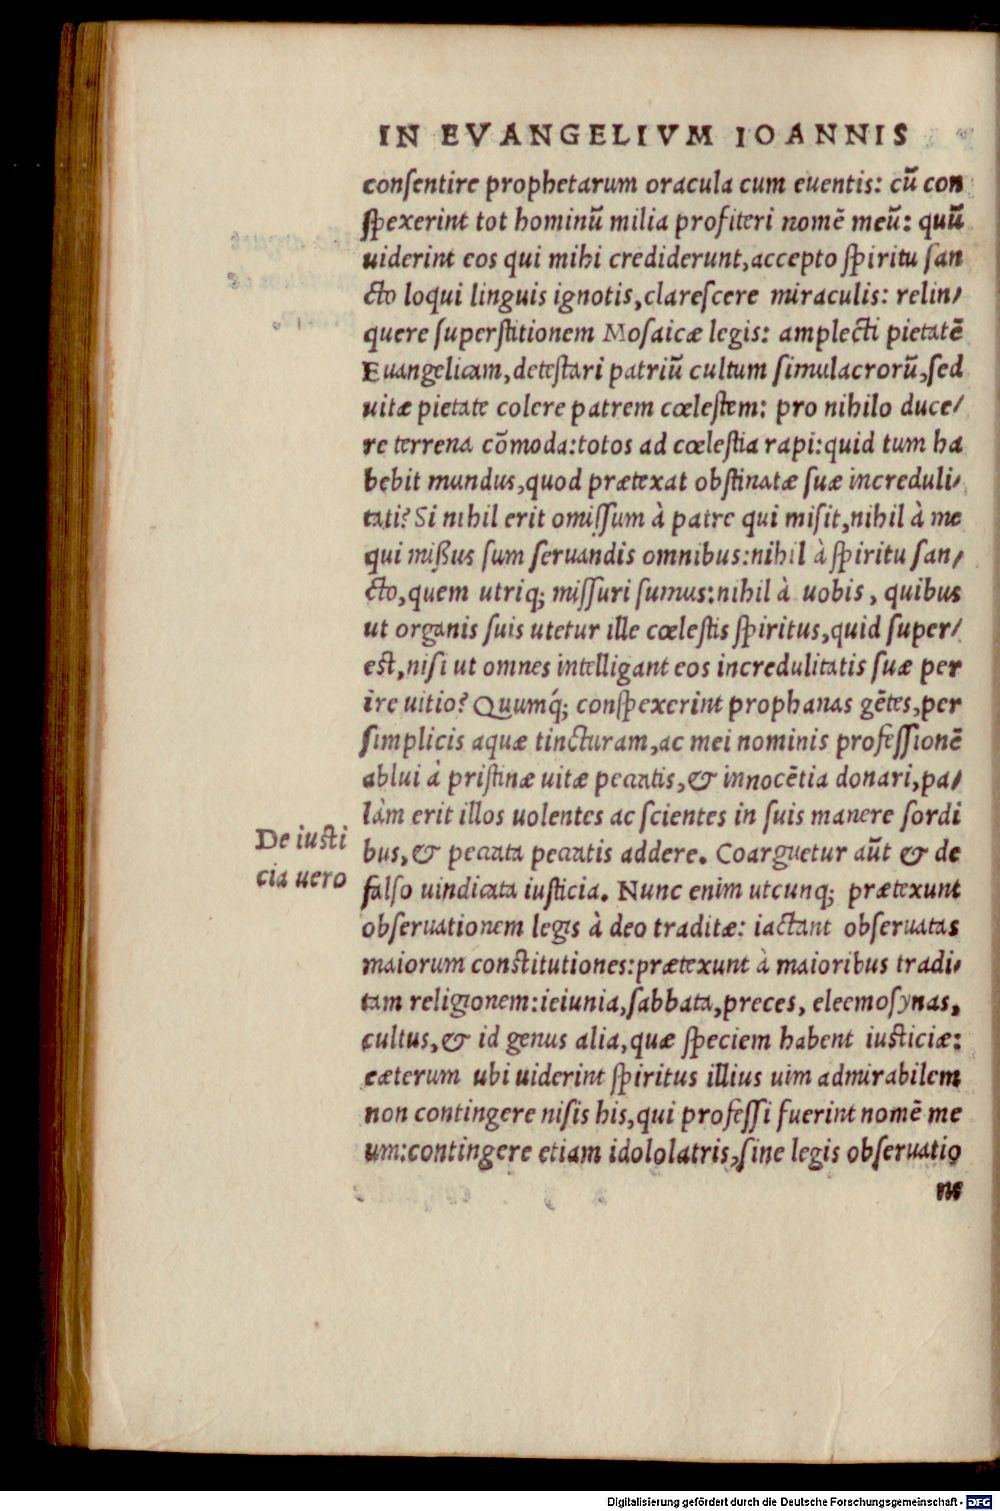 IN EVANGELIVM IOANNIS
conſentire prophetarum oracula cum euentis: cũ con
ſpexerint tot hominũ milia profiteri nomẽ meũ: quũ
uiderint eos qui mihi crediderunt,accepto ſpiritu ſan
cto loqui linguis ignotis,clareſcere miraculis: relin/
quere ſuperſtitionem Moſaicæ legis: amplecti pietatẽ
Euangelicam,deteſtari patriũ cultum ſimulacrorũ,ſed
uitæ pietate colere patrem cœleſtem: pro nihilo duce/
re terrena cõmoda:totos ad cœleſtia rapi:quid tum ha
bebit mundus,quod prætexat obſtinatæ ſuæ increduli/
tati? Si nihil erit omiſſum à patre qui miſit,nihil à me
qui mißus ſum ſeruandis omnibus:nihil à ſpiritu ſan/
cto,quem utriq; miſſuri ſumus:nihil à uobis, quibus
ut organis ſuis utetur ille cœleſtis ſpiritus,quid ſuper/
eſt,niſi ut omnes intelligant eos incredulitatis ſuæ per
ire uitio? Quumq́; conſpexerint prophanas gẽtes,per
ſimplicis aquæ tincturam,ac mei nominis profeſſionẽ
ablui à priſtinæ uitæ peccatis,& innocẽtia donari,pa/
làm erit illos uolentes ac ſcientes in ſuis manere ſordi
bus,& peccata peccatis addere. Coarguetur aũt & de
falſo uindicata iuſticia. Nunc enim utcunq; prætexunt
obſeruationem legis à deo traditæ: iactant obſeruatas
maiorum conſtitutiones:prætexunt à maioribus tradi/
tam religionem:ieiunia,ſabbata,preces, eleemoſynas,
cultus,& id genus alia,quæ ſpeciem habent iuſticiæ:
cæterum ubi uiderint ſpiritus illius uim admirabilem
non contingere niſis his,qui profeſſi fuerint nomẽ me
um:contingere etiam idololatris,ſine legis obſeruatio
ne
De iuſti
cia uero
Digitalisierung gefördert durch die Deutsche Forschungsgemeinschaft - DFG